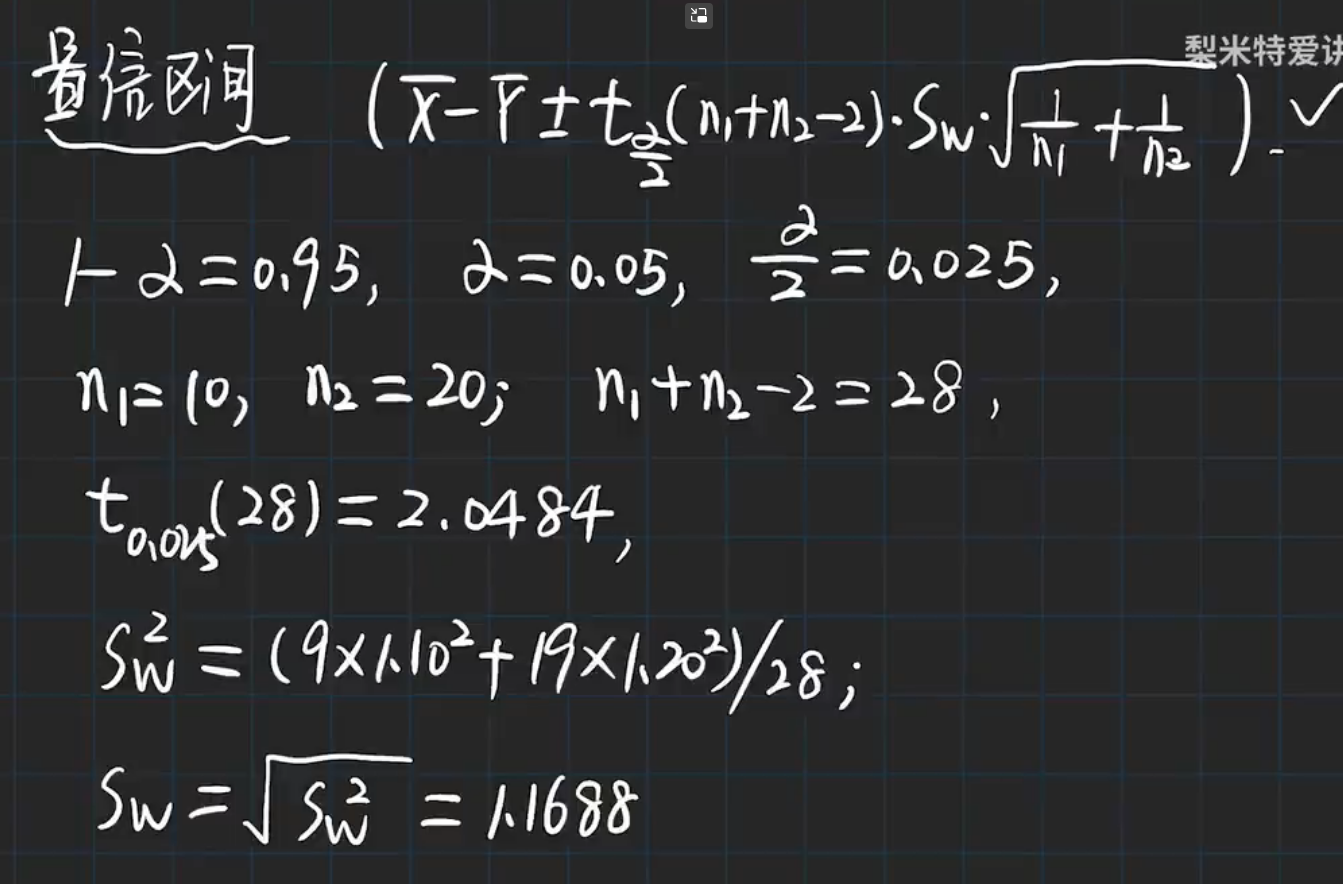 梨米特爱讲
置信区间 (X̄-Ȳ±t_{α/2}(n₁+n₂-2)·S_W·√(1/n₁+1/n₂)). ✓
1-α=0.95, α=0.05, α/2=0.025,
n₁=10, n₂=20; n₁+n₂-2=28,
t_{0.025}(28)=2.0484,
S_W²=(9×1.10²+19×1.20²)/28;
S_W=√S_W²=1.1688